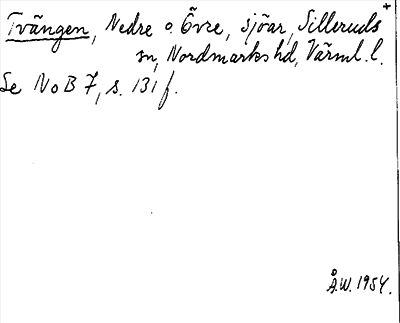 +
Tvängen, Nedre o. Övre, sjöar, Silleruds
sn, Nordmarks hd, Värml. l.
Se NoB 7, s. 131 f.
Å.W. 1954.